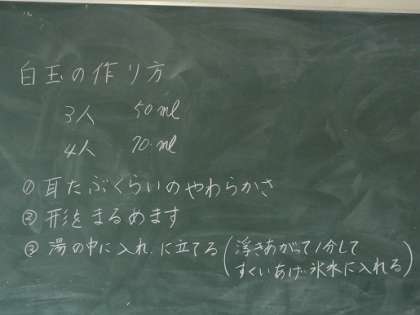 白玉の作り方
3人 50ml
4人 70ml
① 耳たぶくらいのやわらかさ
② 形をまるめます
③ 湯の中に入れ に立てる(浮きあがって1分して
すくいあげ 氷水に入れる)